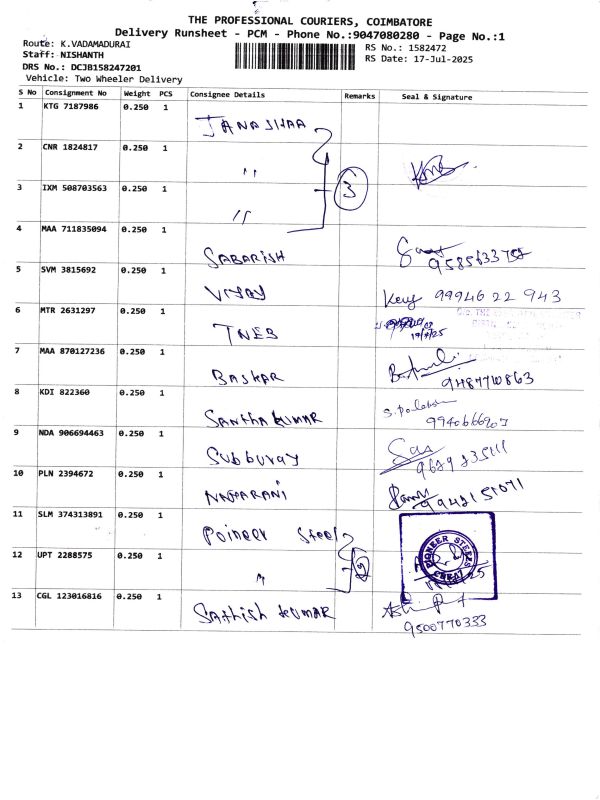 THE PROFESSIONAL COURIERS, COIMBATORE
Delivery Runsheet - PCM - Phone No.:9047080280 - Page No.:1
Route: K.VADAMADURAI
Staff: NISHANTH
DRS No.: DCJB158247201
Vehicle: Two Wheeler Delivery
RS No.: 1582472
RS Date: 17-Jul-2025
S No Consignment No Weight PCS Consignee Details Remarks Seal & Signature
1 KTG 7187986 0.250 1 JANASHAA
2 CNR 1824817 0.250 1 "
3 IXM 508703563 0.250 1 " 3
4 MAA 711835094 0.250 1 SABARISH
5 SVM 3815692 0.250 1 VIJAY 99946 22 943
6 MTR 2631297 0.250 1 TNEB
7 MAA 870127236 0.250 1 BASKAR 9487710863
8 KDI 822360 0.250 1 SANTHA KUMAR 9940666907
9 NDA 906694463 0.250 1 SUBBURAY
10 PLN 2394672 0.250 1 NAGARANI 9942151071
11 SLM 374313891 0.250 1 Poineer Steel
PIONEER STEELS
12 UPT 2288575 0.250 1 "
13 CGL 123016816 0.250 1 SAthish KUMAR
9500770333